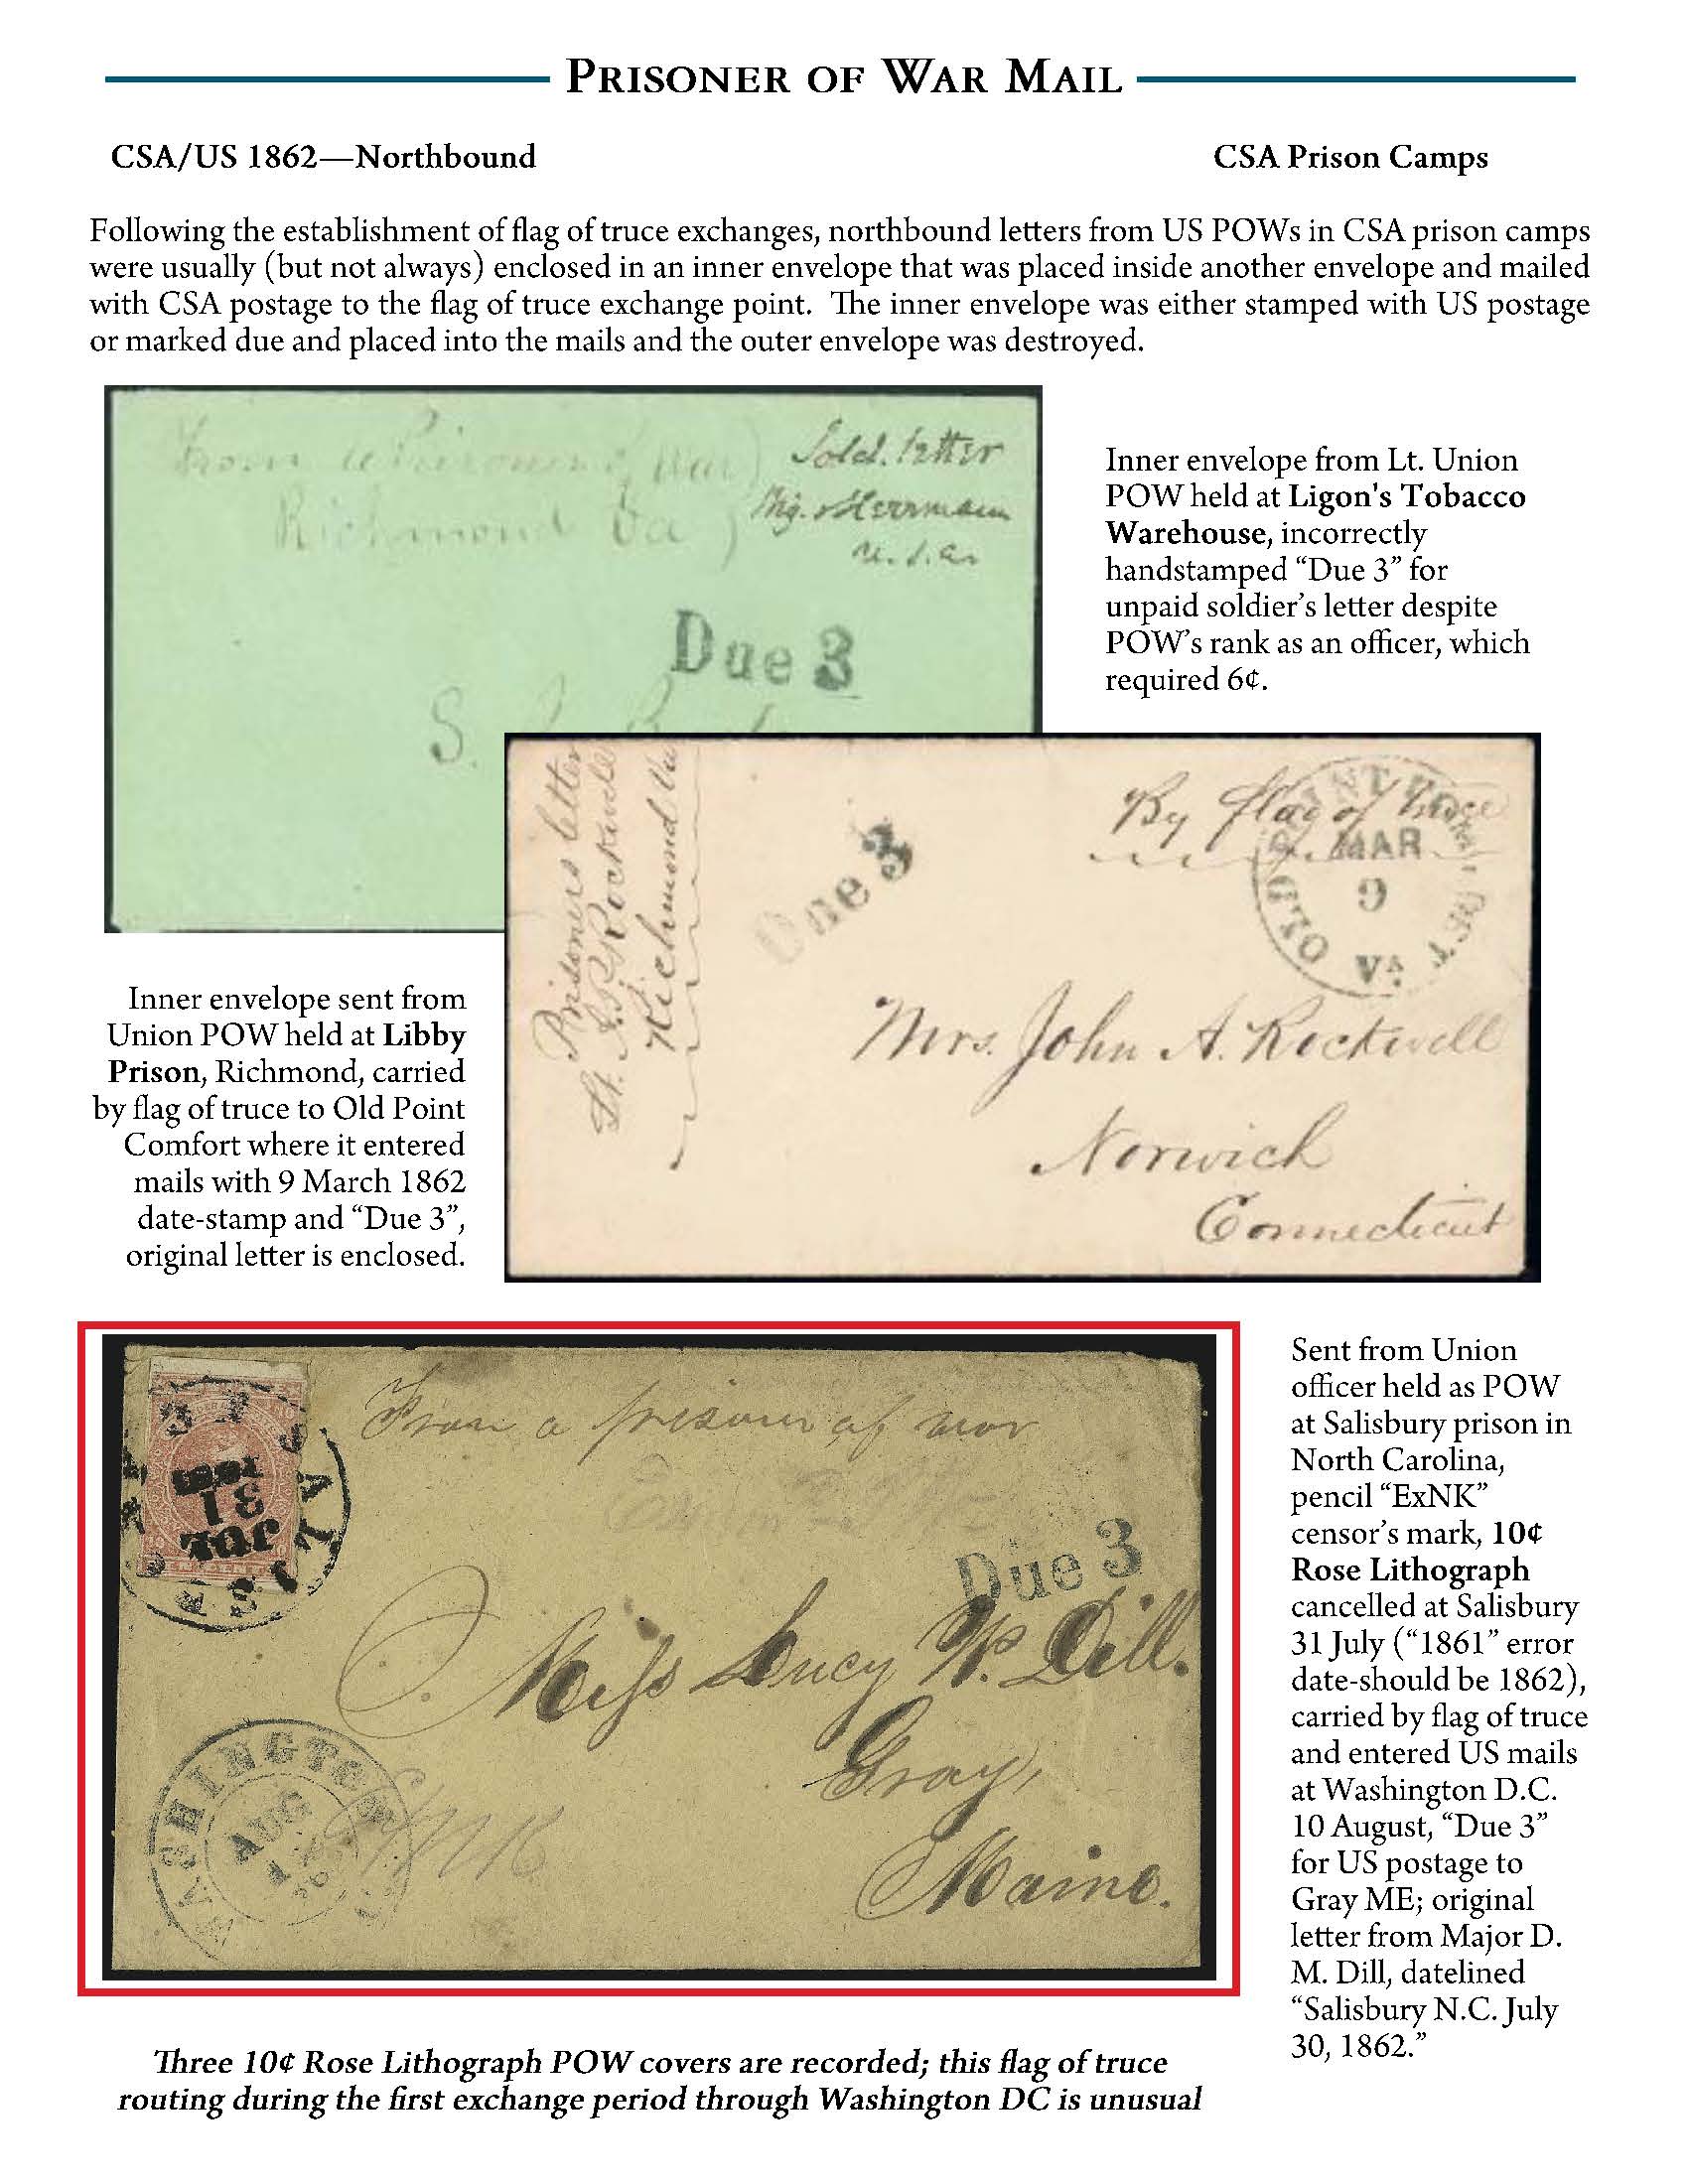 Prisoner of War Mail
CSA/US 1862—Northbound
CSA Prison Camps
Following the establishment of flag of truce exchanges, northbound letters from US POWs in CSA prison camps
were usually (but not always) enclosed in an inner envelope that was placed inside another envelope and mailed
with CSA postage to the flag of truce exchange point. The inner envelope was either stamped with US postage
or marked due and placed into the mails and the outer envelope was destroyed.
From a Prisoner of War)
Richmond Va)
Sold. letter
Mg. Herrmann
u.s.a.
Due 3
S.
Inner envelope from Lt. Union
POW held at Ligon's Tobacco
Warehouse, incorrectly
handstamped “Due 3” for
unpaid soldier’s letter despite
POW’s rank as an officer, which
required 6¢.
Prisoners letter
Lt. A.P. Rockwell
Richmond Va
Due 3
By flag of truce
OLD POINT COMFORT
MAR
9
VA
Mrs. John A. Rockwell
Norwich
Connecticut
Inner envelope sent from
Union POW held at Libby
Prison, Richmond, carried
by flag of truce to Old Point
Comfort where it entered
mails with 9 March 1862
date-stamp and “Due 3”,
original letter is enclosed.
From a prisoner of war
SALISBURY
JUL
31
1861
Due 3
Miss Lucy W. Dill.
Gray,
Maine.
WASHINGTON
AUG
ExNK
Sent from Union
officer held as POW
at Salisbury prison in
North Carolina,
pencil “ExNK”
censor’s mark, 10¢
Rose Lithograph
cancelled at Salisbury
31 July (“1861” error
date-should be 1862),
carried by flag of truce
and entered US mails
at Washington D.C.
10 August, “Due 3”
for US postage to
Gray ME; original
letter from Major D.
M. Dill, datelined
“Salisbury N.C. July
30, 1862.”
Three 10¢ Rose Lithograph POW covers are recorded; this flag of truce
routing during the first exchange period through Washington DC is unusual